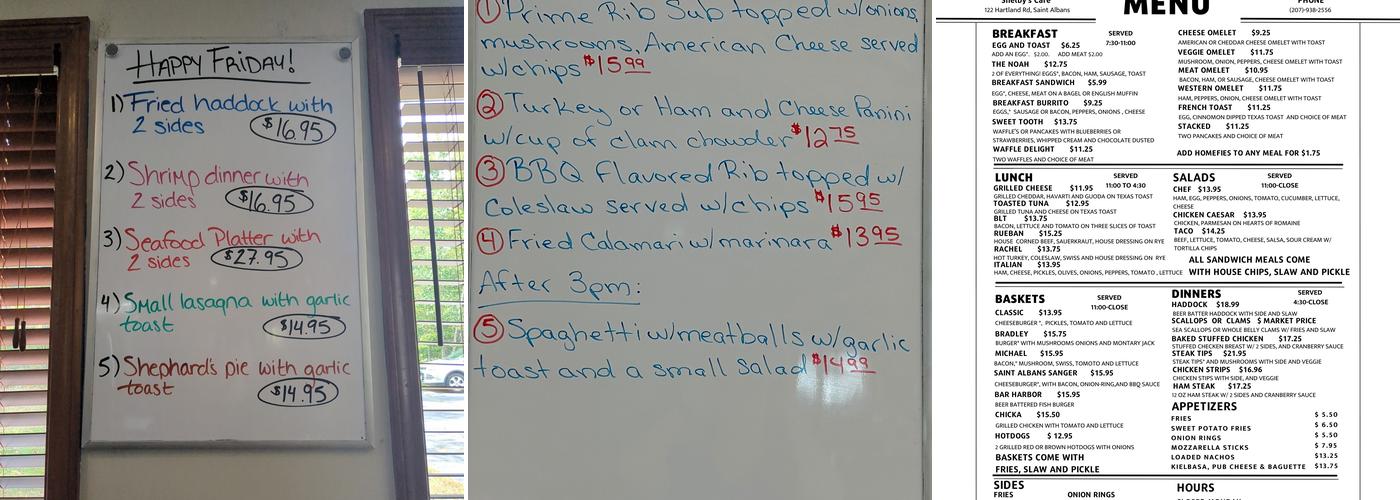 HAPPY FRIDAY!
1) Fried haddock with
2 sides $16.95
2) Shrimp dinner with
2 sides $16.95
3) Seafood Platter with
2 sides $27.95
4) Small lasagna with garlic
toast $14.95
5) Shephard's pie with garlic
toast $14.95
① Prime Rib Sub topped w/onions,
mushrooms, American Cheese served
w/chips $15.99
② Turkey or Ham and Cheese Panini
w/cup of clam chowder $12.75
③ BBQ Flavored Rib topped w/
Coleslaw served w/chips $15.95
④ Fried Calamari w/marinara $13.95
After 3pm:
⑤ Spaghetti w/meatballs w/garlic
toast and a small Salad $14.99
Shelby's Cafe
122 Hartland Rd, Saint Albans
MENU
PHONE
(207)-938-2556
BREAKFAST SERVED
7:30-11:00
EGG AND TOAST $6.25
ADD AN EGG*. $2.00. ADD MEAT $2.00
THE NOAH $12.75
2 OF EVERYTHING! EGGS*, BACON, HAM, SAUSAGE, TOAST
BREAKFAST SANDWICH $5.99
EGG*, CHEESE, MEAT ON A BAGEL OR ENGLISH MUFFIN
BREAKFAST BURRITO $9.25
EGGS,* SAUSAGE OR BACON, PEPPERS, ONIONS , CHEESE
SWEET TOOTH $13.75
WAFFLE'S OR PANCAKES WITH BLUEBERRIES OR
STRAWBERRIES, WHIPPED CREAM AND CHOCOLATE DUSTED
WAFFLE DELIGHT $11.25
TWO WAFFLES AND CHOICE OF MEAT
CHEESE OMELET $9.25
AMERICAN OR CHEDDAR CHEESE OMELET WITH TOAST
VEGGIE OMELET $11.75
MUSHROOM, ONION, PEPPERS, CHEESE OMELET WITH TOAST
MEAT OMELET $10.95
BACON, HAM, OR SAUSAGE, CHEESE OMELET WITH TOAST
WESTERN OMELET $11.75
HAM, PEPPERS, ONION, CHEESE OMELET WITH TOAST
FRENCH TOAST $11.25
EGG, CINNOMON DIPPED TEXAS TOAST AND CHOICE OF MEAT
STACKED $11.25
TWO PANCAKES AND CHOICE OF MEAT
ADD HOMEFIES TO ANY MEAL FOR $1.75
LUNCH SERVED
11:00 TO 4:30
GRILLED CHEESE $11.95
GRILLED CHEDDAR, HAVARTI AND GUODA ON TEXAS TOAST
TOASTED TUNA $12.95
GRILLED TUNA AND CHEESE ON TEXAS TOAST
BLT $13.75
BACON, LETTUCE AND TOMATO ON THREE SLICES OF TOAST
RUEBAN $15.25
HOUSE CORNED BEEF, SAUERKRAUT, HOUSE DRESSING ON RYE
RACHEL $13.75
HOT TURKEY, COLESLAW, SWISS AND HOUSE DRESSING ON RYE
ITALIAN $13.95
HAM, CHEESE, PICKLES, OLIVES, ONIONS, PEPPERS, TOMATO , LETTUCE
SALADS SERVED
11:00-CLOSE
CHEF $13.95
HAM, EGG, PEPPERS, ONIONS, TOMATO, CUCUMBER, LETTUCE,
CHEESE
CHICKEN CAESAR $13.95
CHICKEN, PARMESAN ON HEARTS OF ROMAINE
TACO $14.25
BEEF, LETTUCE, TOMATO, CHEESE, SALSA, SOUR CREAM W/
TORTILLA CHIPS
ALL SANDWICH MEALS COME
WITH HOUSE CHIPS, SLAW AND PICKLE
BASKETS SERVED
11:00-CLOSE
CLASSIC $13.95
CHEESEBURGER *, PICKLES, TOMATO AND LETTUCE
BRADLEY $15.75
BURGER* WITH MUSHROOMS ONIONS AND MONTARY JACK
MICHAEL $15.95
BACON,* MUSHROOM, SWISS, TOMATO AND LETTUCE
SAINT ALBANS SANGER $15.95
CHEESEBURGER*, WITH BACON, ONION-RING,AND BBQ SAUCE
BAR HARBOR $15.95
BEER BATTERED FISH BURGER
CHICKA $15.50
GRILLED CHICKEN WITH TOMATO AND LETTUCE
HOTDOGS $ 12.95
2 GRILLED RED OR BROWN HOTDOGS WITH ONIONS
BASKETS COME WITH
FRIES, SLAW AND PICKLE
DINNERS SERVED
4:30-CLOSE
HADDOCK $18.99
BEER BATTER HADDOCK WITH SIDE AND SLAW
SCALLOPS OR CLAMS $ MARKET PRICE
SEA SCALLOPS OR WHOLE BELLY CLAMS W/ FRIES AND SLAW
BAKED STUFFED CHICKEN $17.25
STUFFED CHICKEN BREAST W/ 2 SIDES, AND CRANBERRY SAUCE
STEAK TIPS $21.95
STEAK TIPS* AND MUSHROOMS WITH SIDE AND VEGGIE
CHICKEN STRIPS $16.96
CHICKEN STIPS WITH SIDE, AND VEGGIE
HAM STEAK $17.25
12 OZ HAM STEAK W/ 2 SIDES AND CRANBERRY SAUCE
APPETIZERS
FRIES $ 5.50
SWEET POTATO FRIES $ 6.50
ONION RINGS $ 5.50
MOZZARELLA STICKS $ 7.95
LOADED NACHOS $13.25
KIELBASA, PUB CHEESE & BAGUETTE $13.75
SIDES
FRIES ONION RINGS
HOURS